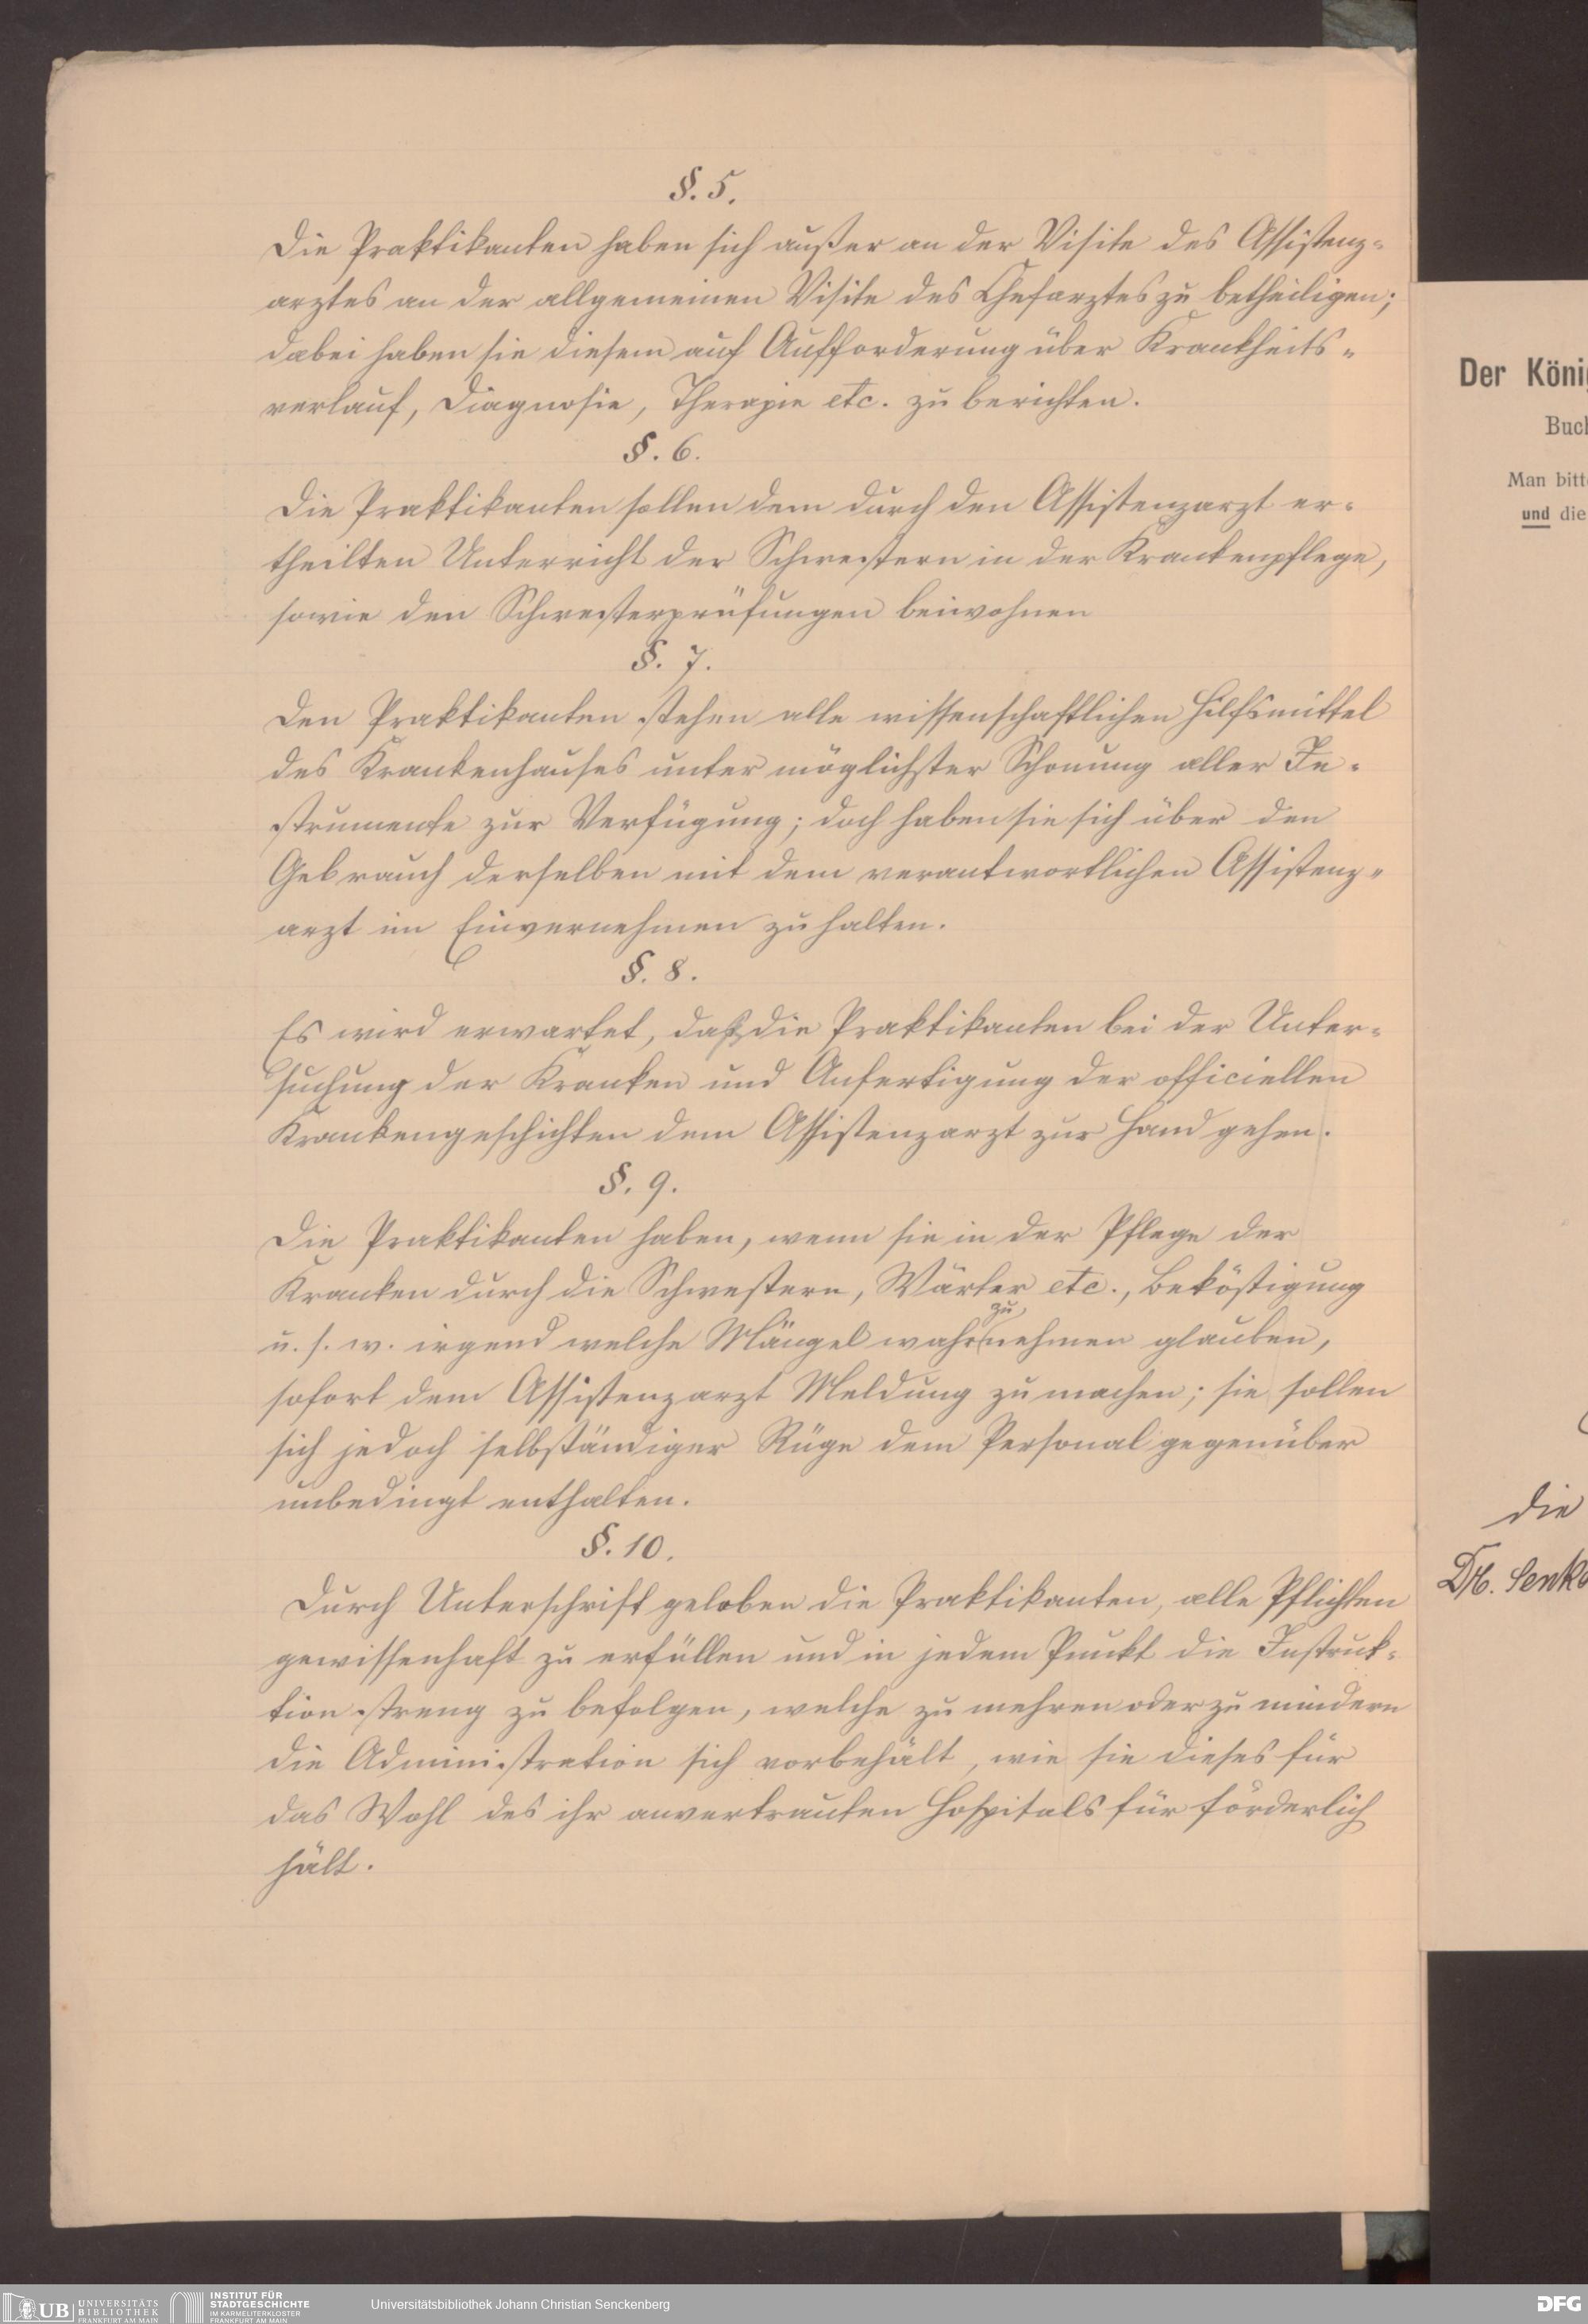 §. 5.
Die Praktikanten haben sich außer an der Visite des Assistenz-
arztes an der allgemeinen Visite des Chefarztes zu betheiligen;
dabei haben sie diesem auf Aufforderung über Krankheits-
verlauf, Diagnosie, Therapie etc. zu berichten.
§. 6.
Die Praktikanten sollen dem durch den Assistenzarzt er-
theilten Unterricht der Schwestern in der Krankenpflege,
sowie den Schwesterprüfungen beiwohnen
§. 7.
Den Praktikanten stehen alle wissenschaftlichen Hilfsmittel
des Krankenhauses unter möglichster Schonung aller In-
strumente zur Verfügung; doch haben sie sich über den
Gebrauch derselben mit dem verantwortlichen Assistenz-
arzt im Einvernehmen zu halten.
§. 8.
Es wird erwartet, daß die Praktikanten bei der Unter-
suchung der Kranken und Anfertigung der officiellen
Krankengeschichten dem Assistenzarzt zur Hand gehen.
§. 9.
Die Praktikanten haben, wenn sie in der Pflege der
Kranken durch die Schwestern, Wärter etc., Beköstigung
u. s. w. irgend welche Mängel wahrzunehmen glauben,
sofort dem Assistenzarzt Meldung zu machen; sie sollen
sich jedoch selbständiger Rüge dem Personal gegenüber
unbedingt enthalten.
§. 10.
Durch Unterschrift geloben die Praktikanten, alle Pflichten
gewissenhaft zu erfüllen und in jedem Punkt die Instruk-
tion streng zu befolgen, welche zu mehren oder zu mindern
die Administration sich vorbehält, wie sie dieses für
das Wohl des ihr anvertrauten Hospitals für förderlich
hält.
Der König
Buch
Man bitte
und die
die
Dr. Senke
UB UNIVERSITÄTS BIBLIOTHEK FRANKFURT AM MAIN
INSTITUT FÜR STADTGESCHICHTE IM KARMELITERKLOSTER FRANKFURT AM MAIN
Universitätsbibliothek Johann Christian Senckenberg
DFG